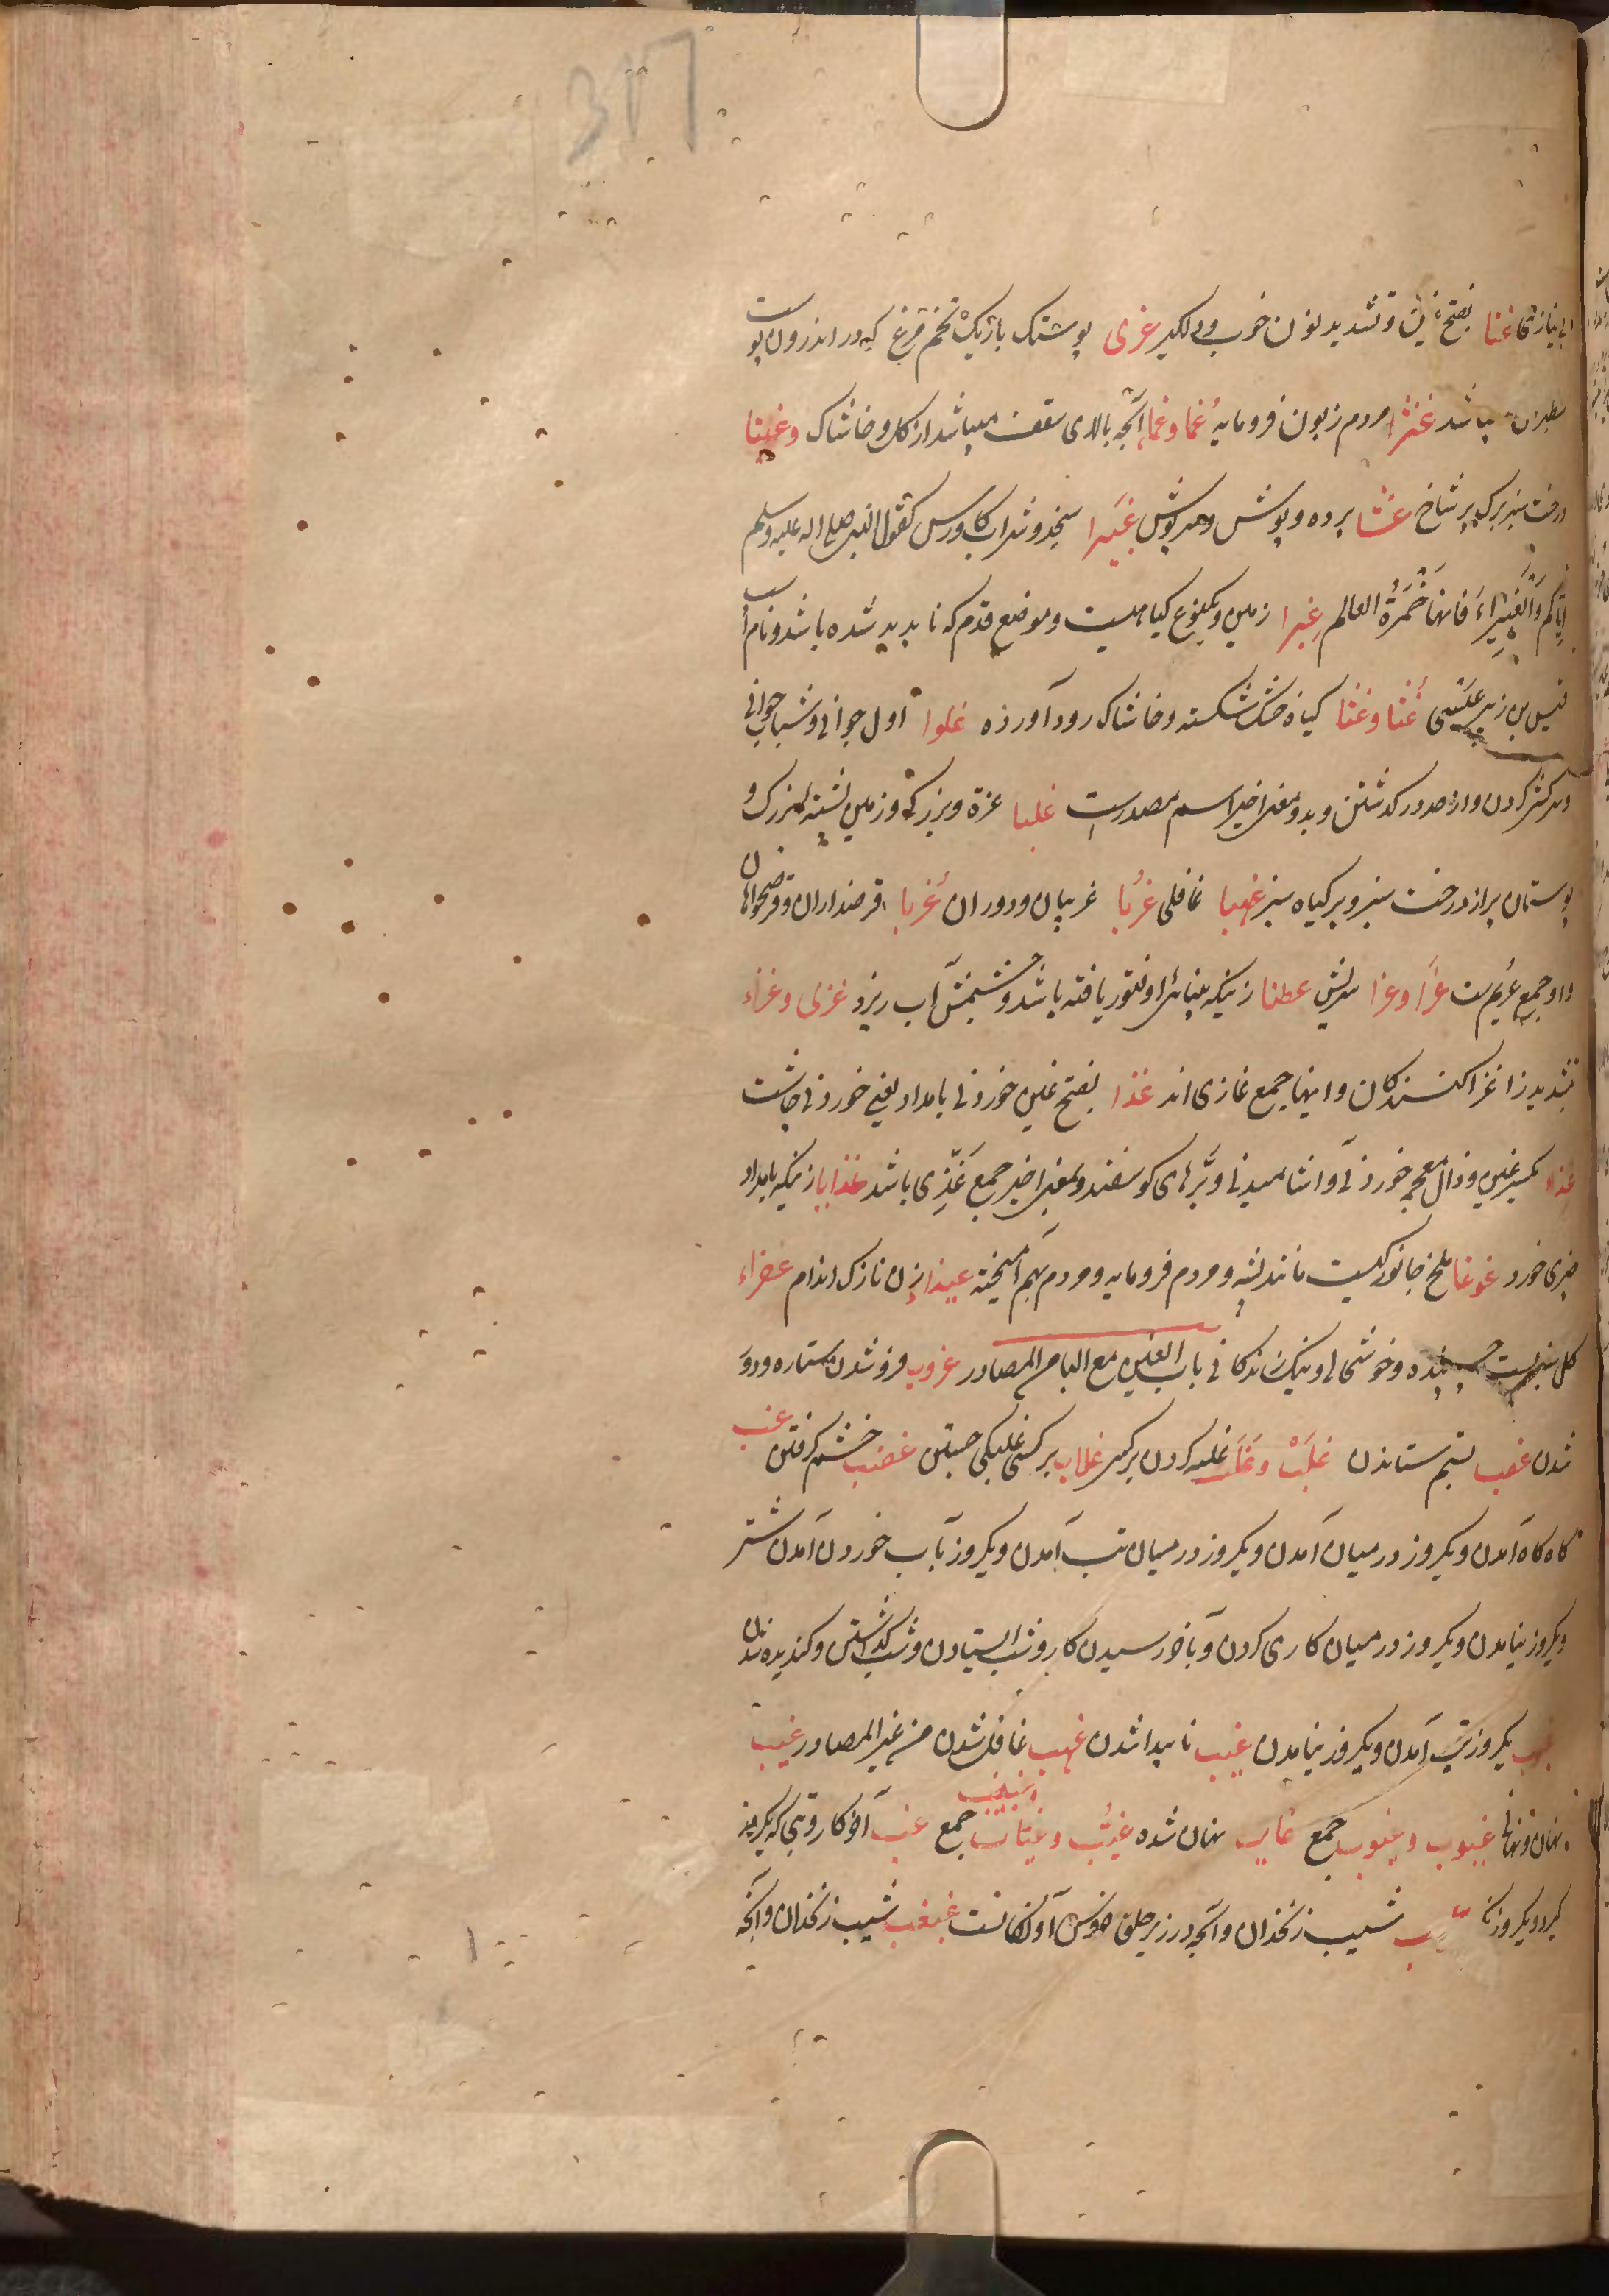 317
بی نیازی غنا بفتح غین و تشدید نون خوب و دلکیر غری پوستک باریک تخم مرغ که در اندرون پوست
باشد غنثرا مردم زبون فرومایه غما و غما آنچه بالای سقف میباشد از کل و خاشاک و غینا
درخت سبز برک پر شاخ غشا پرده و پوشش و سرپوش غبیرا سنجد و شراب کاورس کقول النبی صلی الله علیه وسلم
ایاکم وَالغُبَیراءَ فانها خَمرَةُ العالم غبرا زمین و یکنوع کیاهیست و موضع قدم که ناپدید شده باشد و نام
قیس بن زهیر غثا و غثا کیاه خشک شکسته و خاشاک رود آورده غلوا اول جوانی و شتاب جوانی
و سرکشی کردن و از حد در کذشتن و بدو معنی اخیر اسم مصدرست غلبا عزة و بزرکی و زمین پشته بزرک و
بوستان پر از درخت سبز و پر کیاه سبز غهبا غافلی غربا غریبان و دوران غرما قرضداران و قرضخواهان
و او جمع غریم ست غرا و غرا سریش عطنا زنیکه بینائی او فتور یافته باشد و چشمش آب ریزد غزی و غزاء
بتشدید زا غزا کنندکان و اینها جمع غازی اند غدا بفتح غین خوردنی بامداد یعنی خوردنی چاشت
غذاء بکسر غین و ذال معجمه خوردنی و آشامیدنی و برهای کوسفند و بمعنی اخیر جمع غَذِی باشد غدایا زنیکه بامداد
چیزی خورد غوغا ملخ جانورکیست مانند پشه و مردم فرومایه و مردم بهم آمیخته غیدا زن نازک اندام غضراء
کل سبزیست چسپنده و خوشحالی و نیک زندکانی باب الغین مع البا من المصادر غروب فروشدن ستاره و دور
شدن غصب بستم ستاندن غلَبْ وَ غلَبَ غلبه کردن بر کسی غلاب بر کسی غلبکی جستن غضب خشم کرفتن غب
کاه کاه آمدن و یکروز در میان آمدن و یکروز در میان تب آمدن و یکروز بآب خوردن آمدن شتر
و یکروز نیامدن و یکروز در میان کاری کردن و بآخر رسیدن کار و شب ایستادن و شب کذاشتن و کندیده شدن
یکروز تب آمدن و یکروز نیامدن غیب ناپیدا شدن غهب غافل شدن من غیر المصادر غیب
نهان و نهانی غیوب و غیوب جمع غایب نهان شده غیّب و غیاب وغیب جمع غب آخر کار و تبی که یکروز
کیرد و یکروز نا شیب زنخدان و آنچه در زیر حلق خروس آونکانست غبغب شیب زنخدان و آنچه